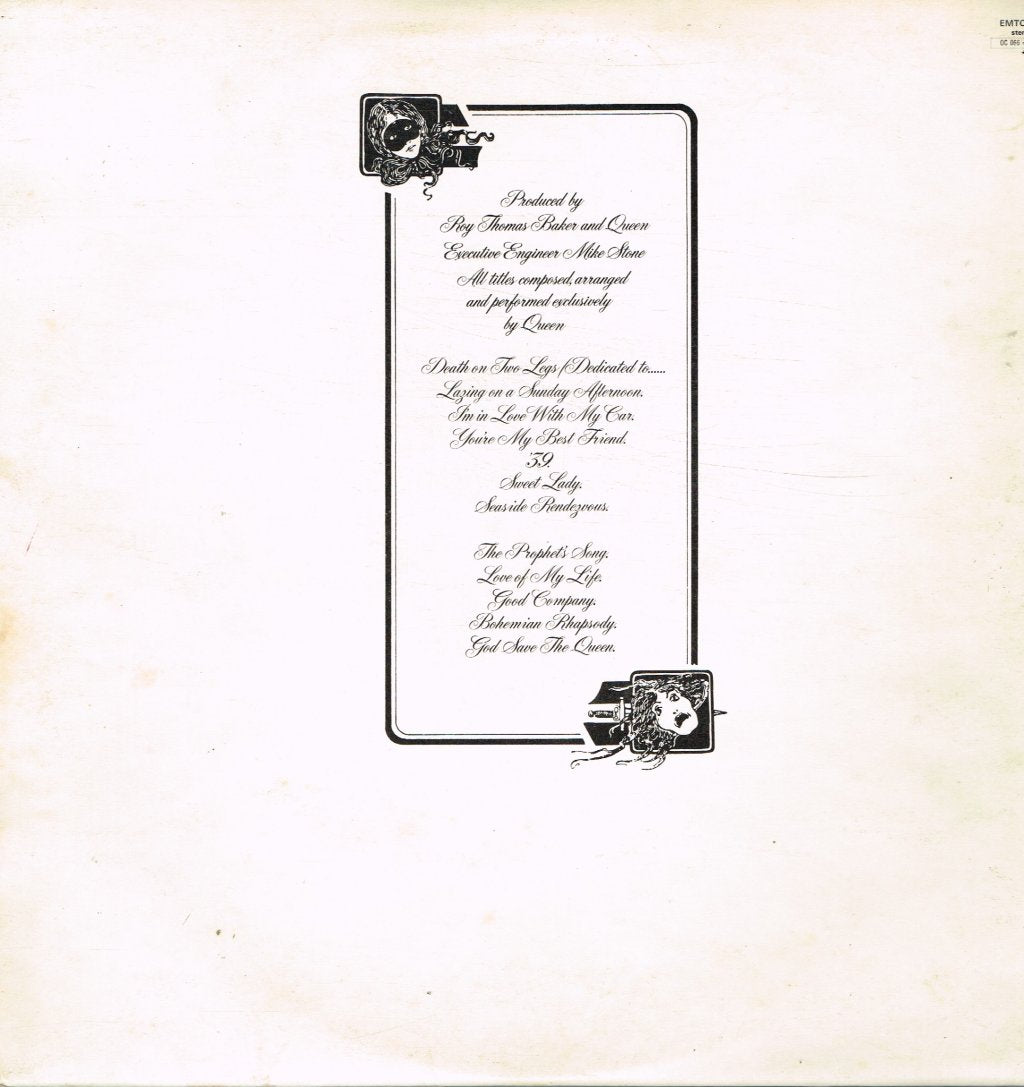 EMTC
ster
OC 066
Produced by
Roy Thomas Baker and Queen
Executive Engineer Mike Stone
All titles composed, arranged
and performed exclusively
by Queen
Death on Two Legs (Dedicated to......
Lazing on a Sunday Afternoon.
I'm in Love With My Car.
You're My Best Friend.
'39.
Sweet Lady.
Seaside Rendezvous.
The Prophet's Song.
Love of My Life.
Good Company.
Bohemian Rhapsody.
God Save The Queen.